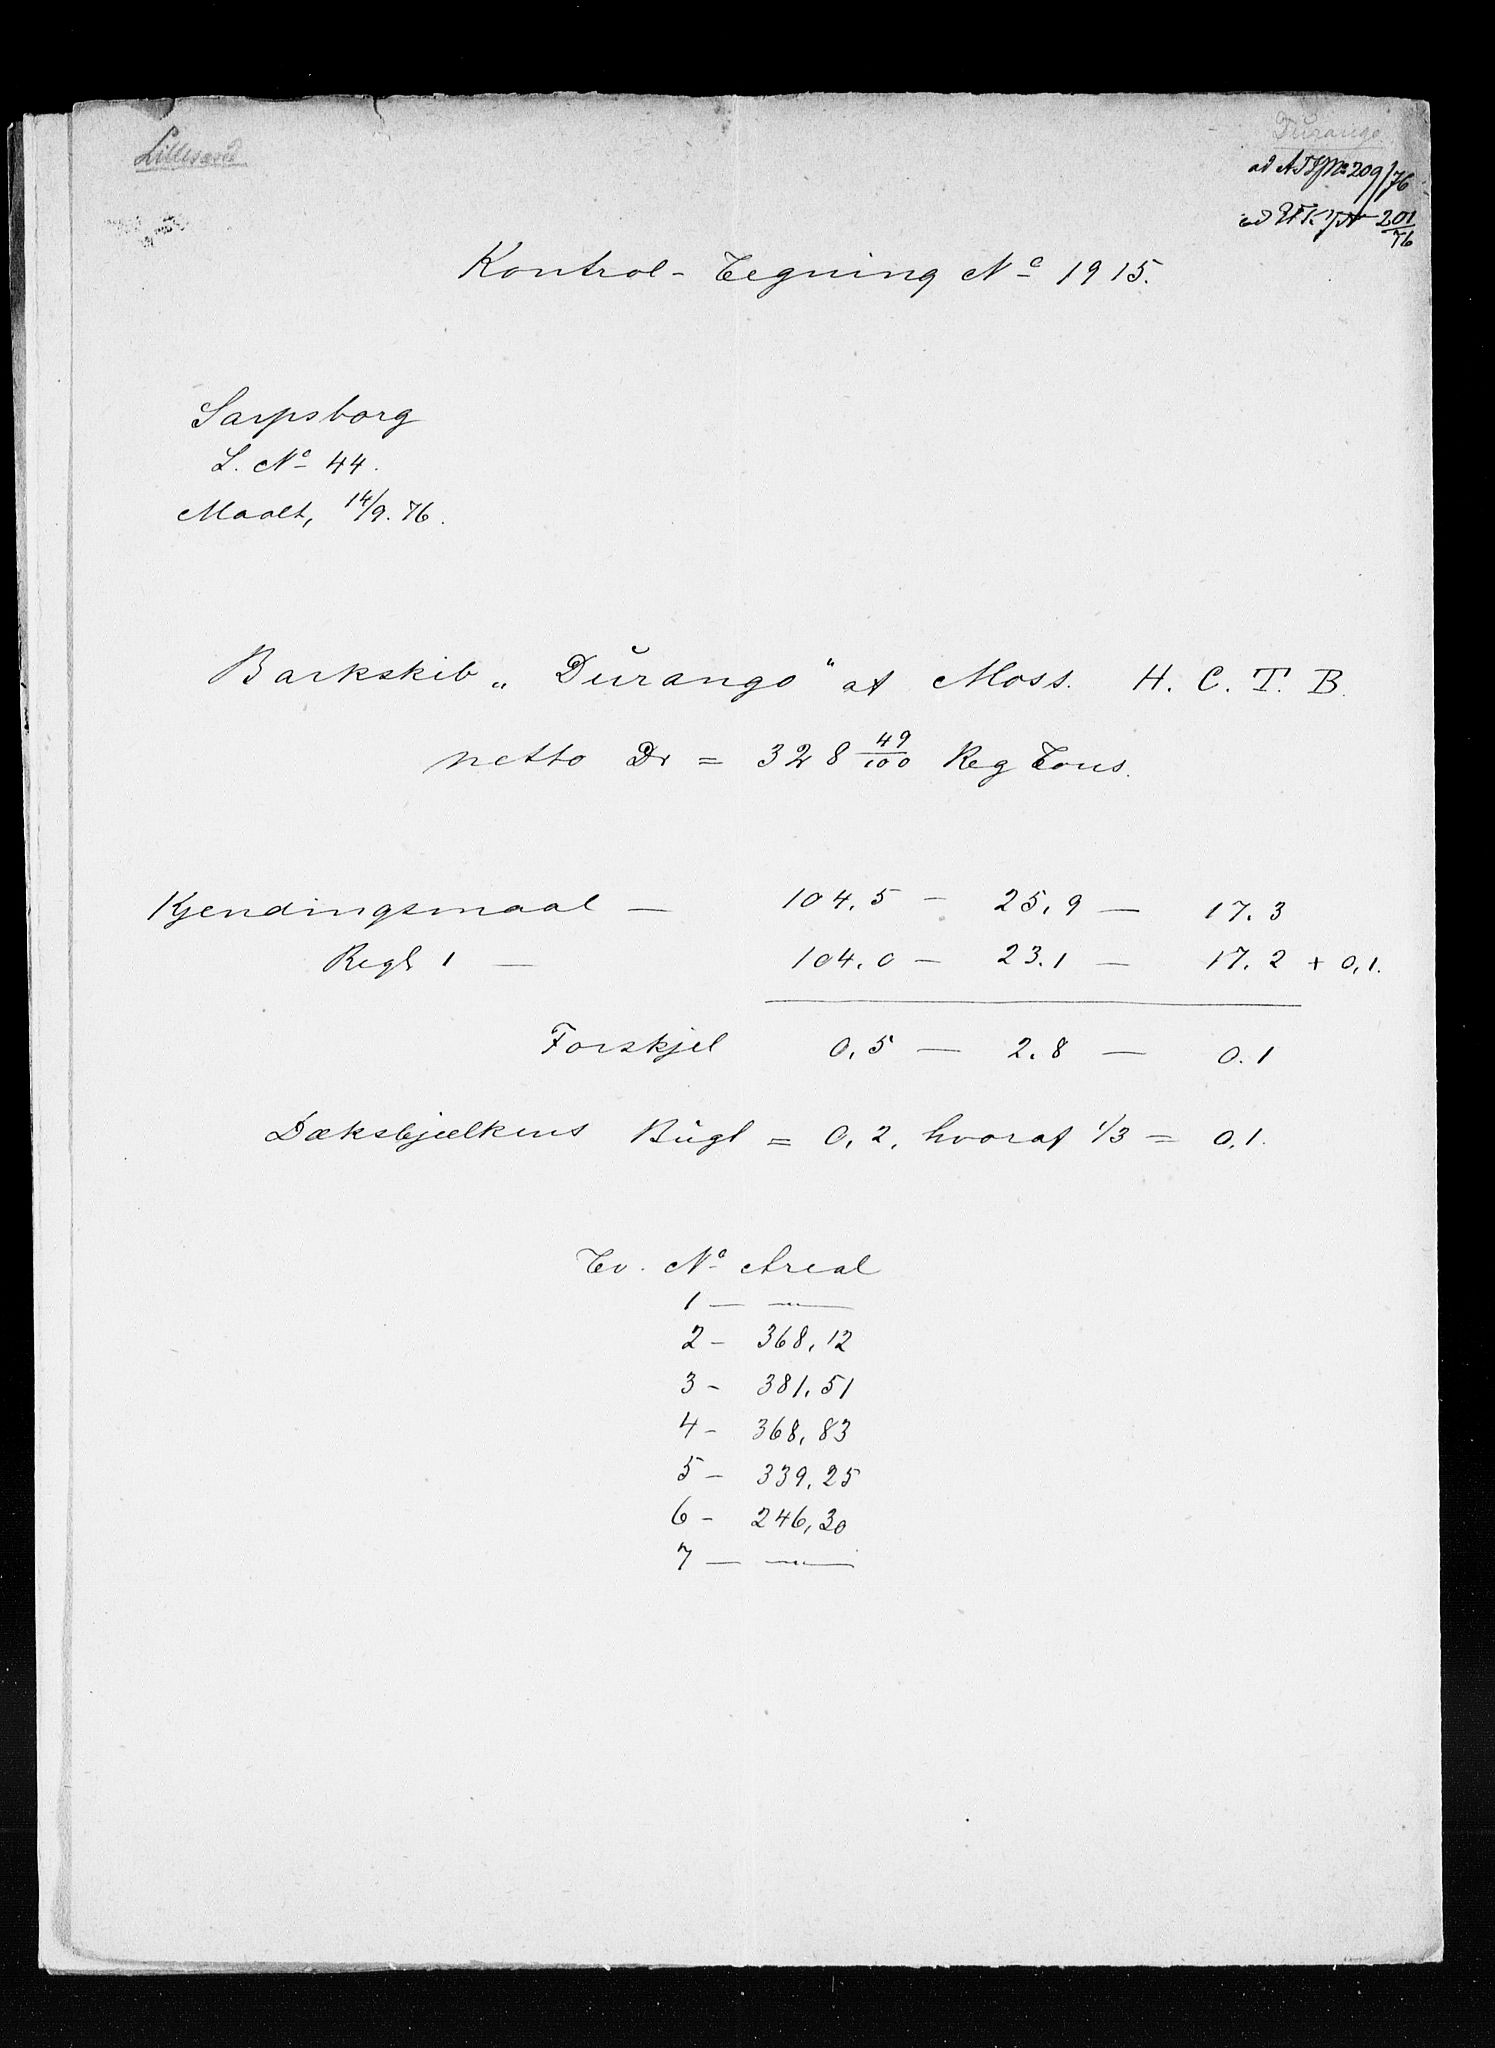 Lillesand
Durango
ad No 209/76
ad 201/76
Kontrol-Tegning No 1915.
Sarpsborg
L. No 44.
Maalt, 14/9. 76.
Barkskib „Dŭrango“ af Moss. H. C. T. B.
netto Dr = 328 49/100 Reg Tons.
Kjendingsmaal — 104.5 — 25,9 — 17.3
Regl 1 — 104.0 — 23.1 — 17.2 + 0,1.
Forskjel 0,5 — 2.8 — 0.1
Dæksbjælkens Bŭgt = 0,2, hvoraf 1/3 = 0,1.
Tv. No Areal
1 — — „ —
2 - 368,12
3 - 381,51
4 - 368,83
5 - 339,25
6 - 246,30
7 — — „ —